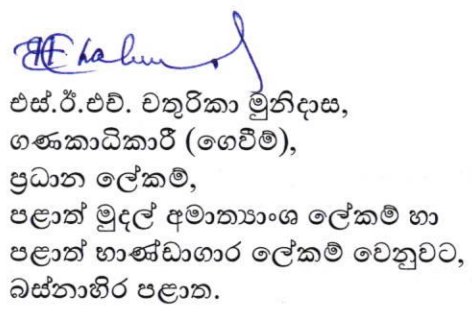 එස්.ඊ.එච්. චතුරිකා මුනිදාස,
ගණකාධිකාරී (ගෙවීම්),
ප්‍රධාන ලේකම්,
පළාත් මුදල් අමාත්‍යාංශ ලේකම් හා
පළාත් භාණ්ඩාගාර ලේකම් වෙනුවට,
බස්නාහිර පළාත.